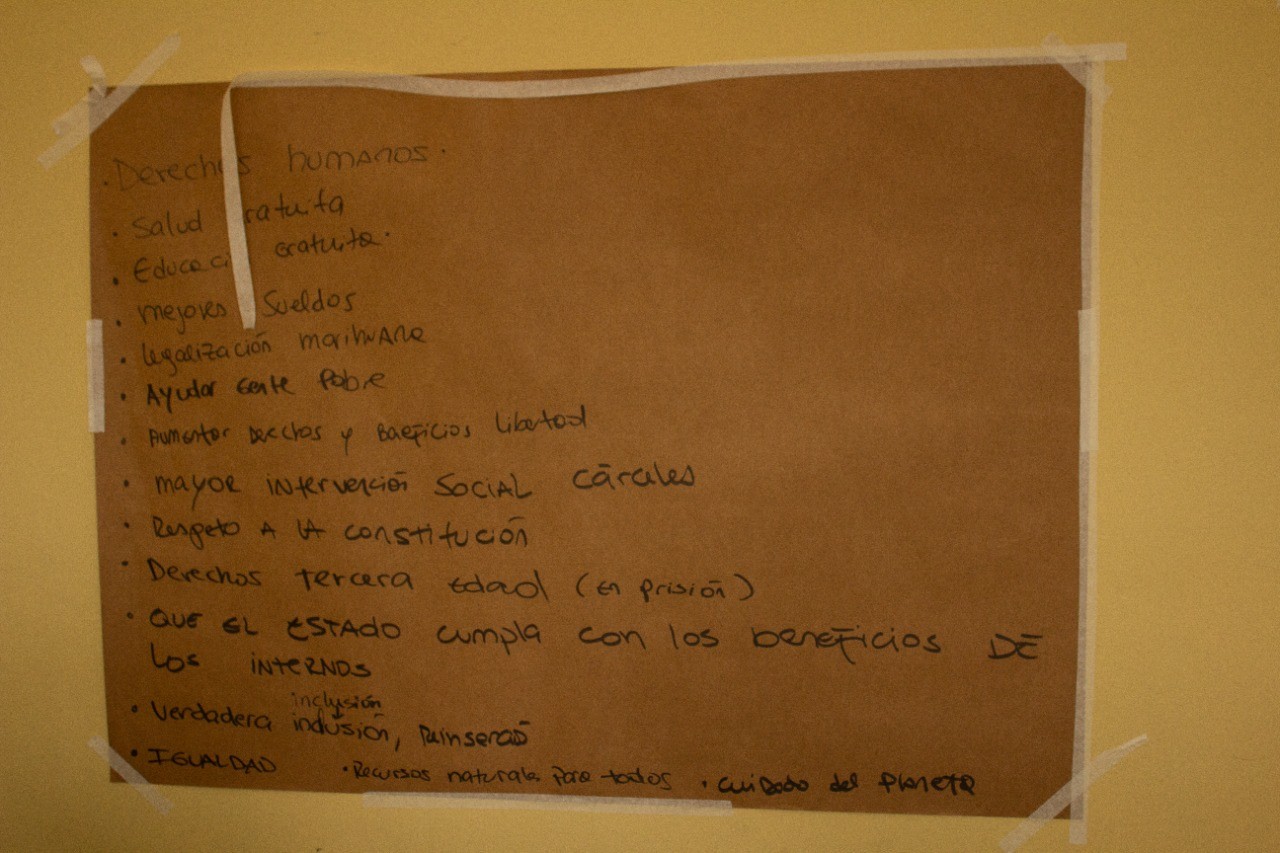 · Derechos humanos.
· Salud gratuita
· Educaci gratuita.
· mejores sueldos
· legalización marihuana
· Ayudar gente pobre
· Aumentar derechos y beneficios libertad
· mayor intervención social cárceles
· Respeto a la constitución
· Derechos tercera edad (en prisión)
· QUE EL ESTADO cumpla con los beneficios DE
los internos
inclusión
· Verdadera inclusión,
· IGUALDAD · Recursos naturales para todos · cuidado del planeta